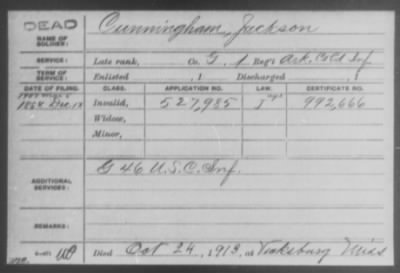 DEAD
NAME OF SOLDIER: Cunningham, Jackson
SERVICE: Late rank, Co. G, 1 Reg't Ark. Cold Inf
TERM OF SERVICE: Enlisted , 1 Discharged , 1
DATE OF FILING. CLASS. APPLICATION NO. LAW. CERTIFICATE NO.
Dec. Invalid, 527,985 992,666
Widow,
Minor,
ADDITIONAL SERVICES: G 46 U.S.C. Inf.
REMARKS:
Died Oct 24, 1913, at Vicksburg Miss